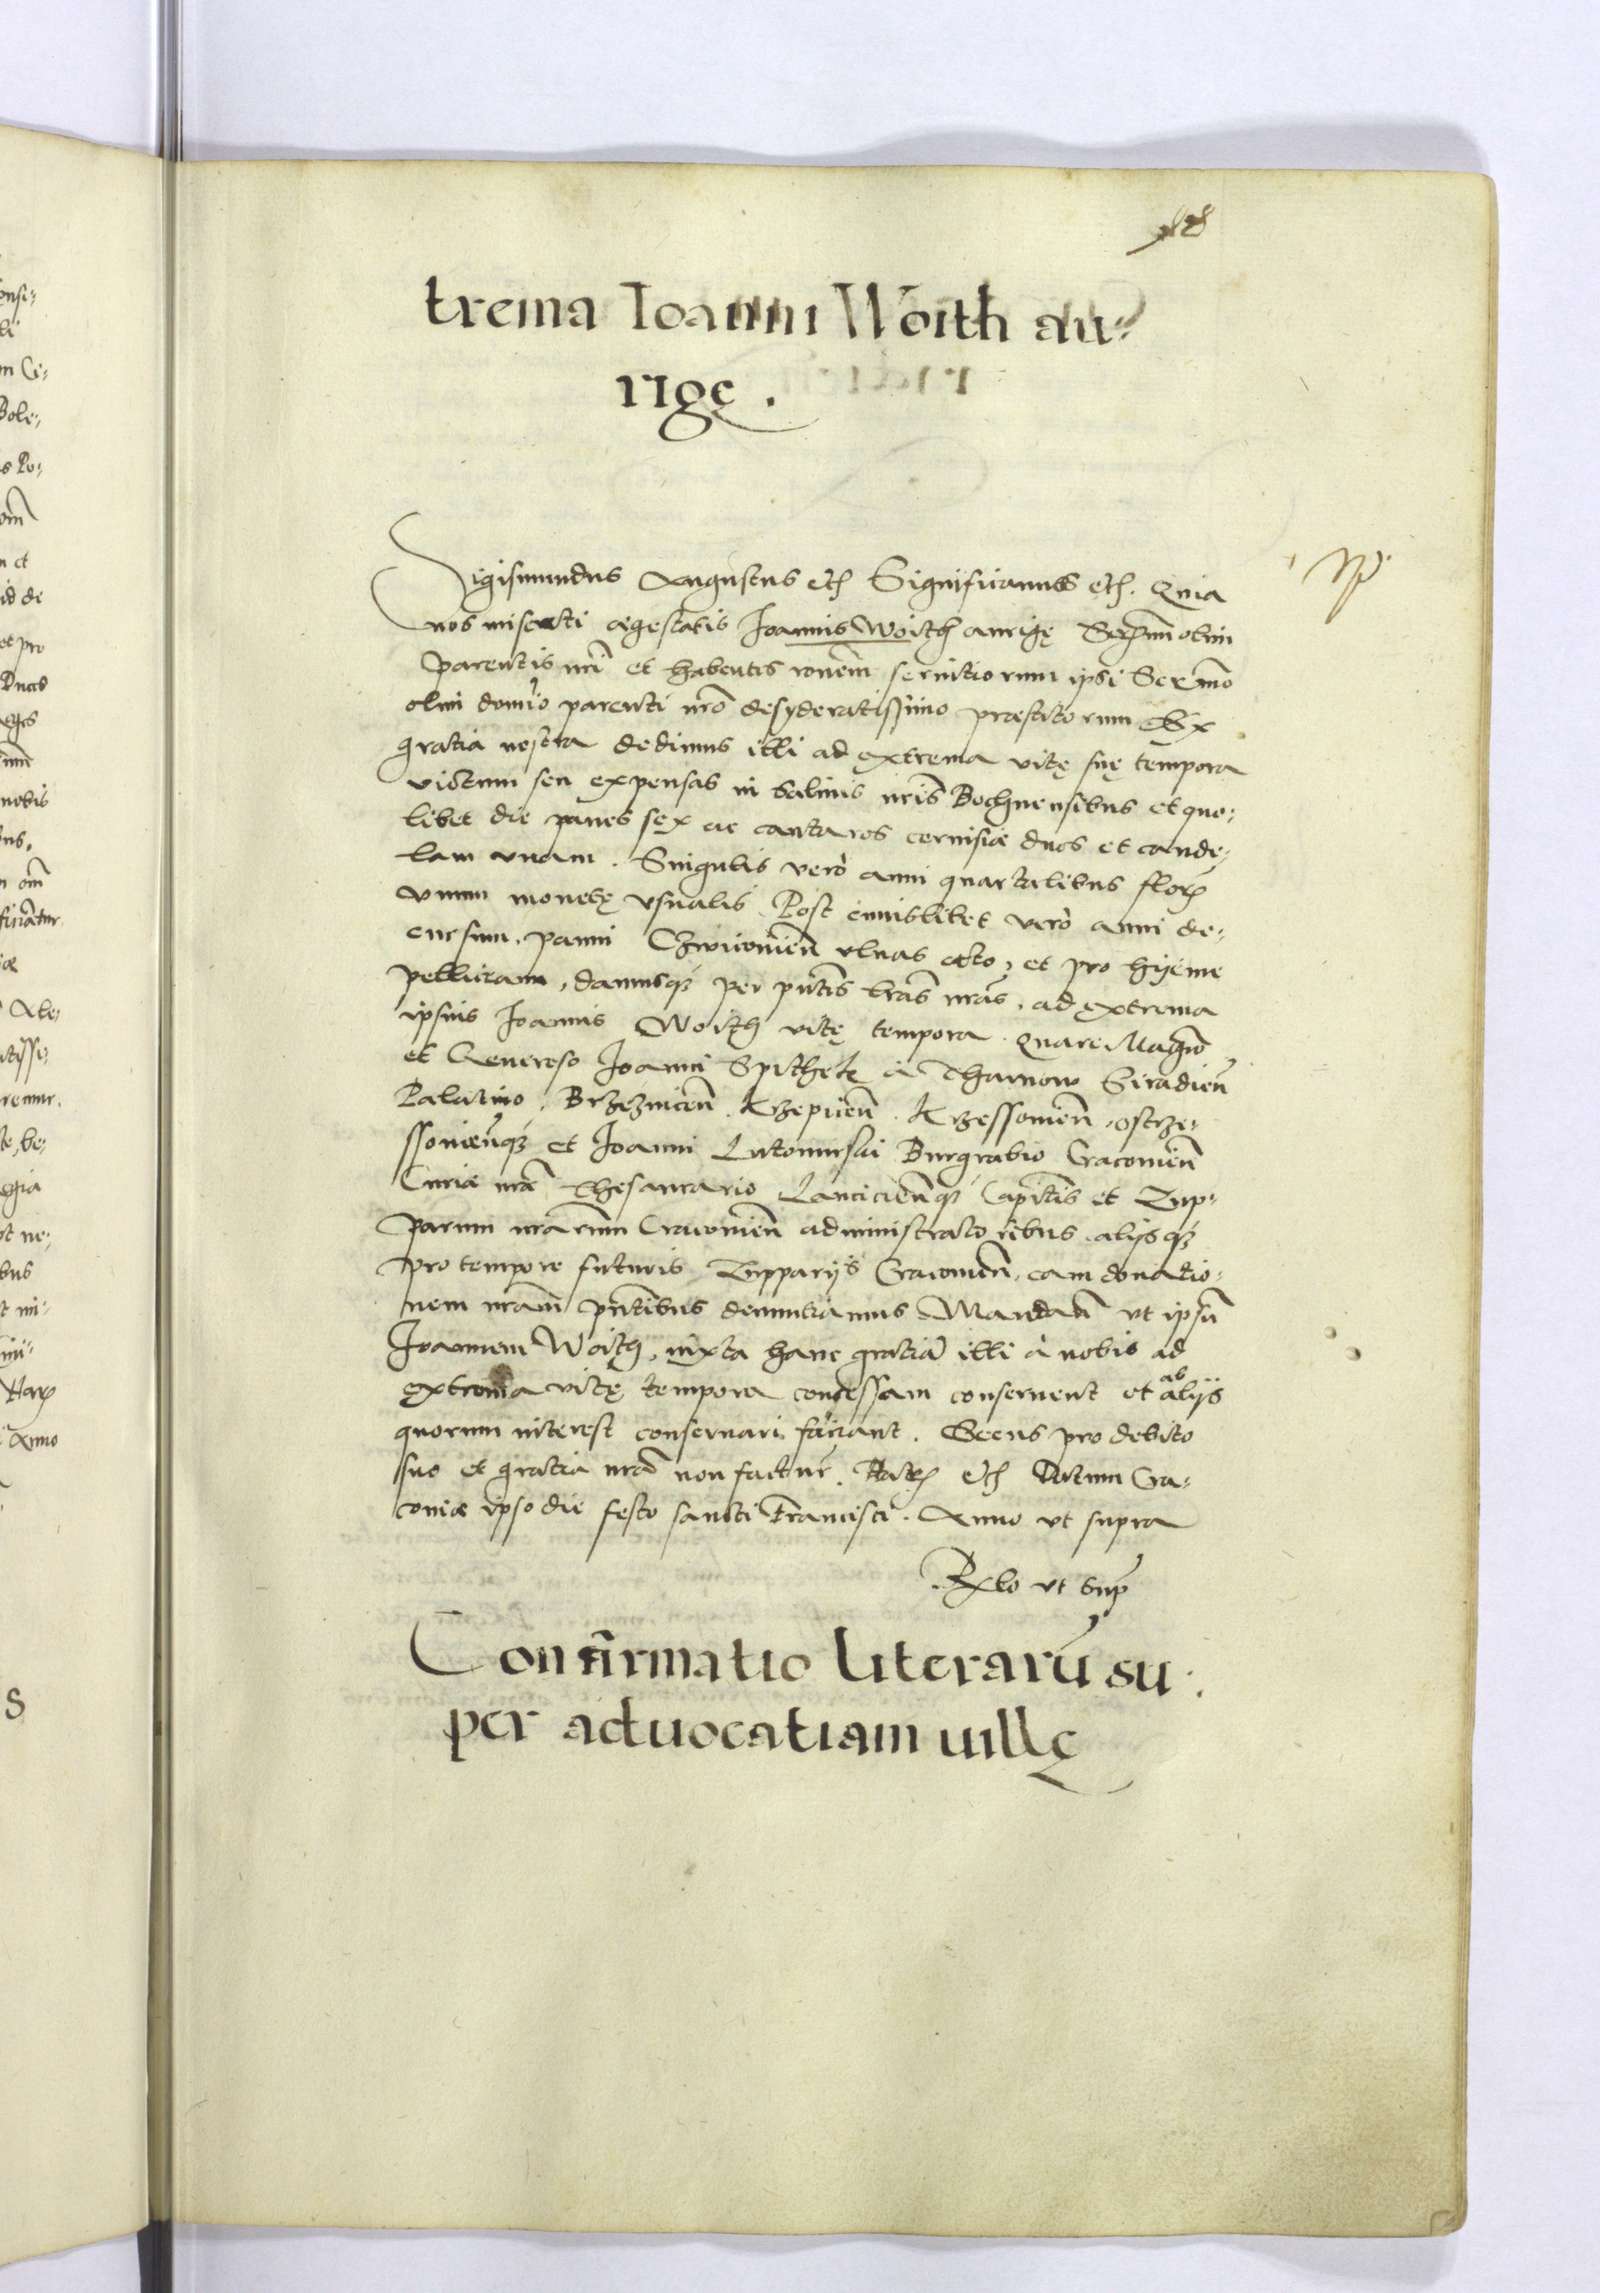 trema Ioanni Woith au-
rigę.
Sigismundus Augustus etc Significamus etc. Quia
nos miserti aegestatis Joannis Woith aurigę Serenmi olim
parentis nri et habentis ronem seruitiorum ipsi Sermo
olim domino parenti nro desyderatissimo praestitorum Ex
gratia nostra dedimus illi ad extrema vitę suę tempora
victum seu expensas in salinis nris Bochnensibus et quo-
libet die panes sex ac cantaros ceruisiae duos et cande-
lam vnam. Singulis verò anni quartalibus flor
vnum monetę vsualis. Post cuiuslibet verò anni de-
cursum, panni Czwicouien vlnas octo, et pro hijeme
pelliceam, damusq per pntes lras nras, ad extrema
ipsius Joannis Woith vitę tempora. Quare Magco
et Generoso Joanni Spithek à Tharnow Siradien
Palatino, Brzeznicen. Krzepicen. Krzessouien. Ostrze-
ssouienq et Joanni Lutomirski Burgrabio Cracouien
Curiae nrae Thesaurario Lancicienq Capitis et Zup-
parum nrarum Cracouien administratoribus alijsq
pro tempore futuris Zupparijs Cracouien, eam donatio-
nem nram pntibus denuntiamus Mandan vt ipsum
Joannem Woith, iuxta hanc gratiã illi à nobis ad
extrema vitę tempora concessam conseruent et ab alijs
quorum interest conseruari faciant. Secus pro debito
suo et gratia nra non factur. Harz etc Datum Cra-
couiae ipso die festo sancti Francisci. Anno vt supra
Rlo vt sup
Confirmatio literarũ su-
per aduocatiam uillę